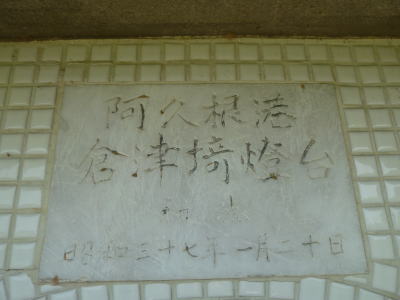 阿久根港
倉津埼燈台
初点
昭和三十七年一月二十日